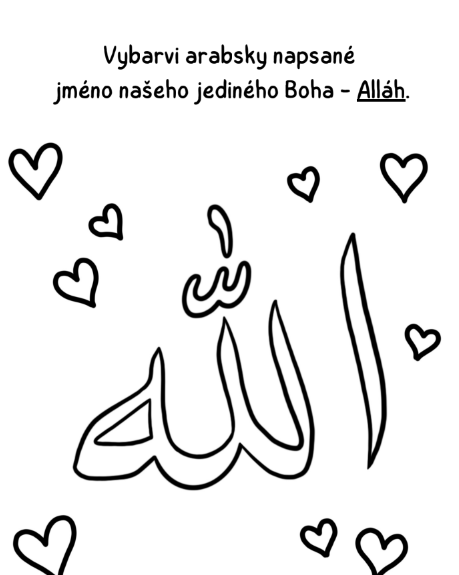 Vybarvi arabsky napsané
jméno našeho jediného Boha - Alláh.
الله